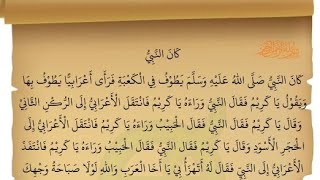 كَانَ النَّبِيُّ
كَانَ النَّبِيُّ صَلَّى اللهُ عَلَيْهِ وَسَلَّمَ يَطُوْفُ فِي الْكَعْبَةِ فَرَأَى أَعْرَابِيًّا يَطُوْفُ بِهَا
وَيَقُوْلُ يَا كَرِيْمُ فَقَالَ النَّبِيُّ وَرَاءَهُ يَا كَرِيْمُ فَانْتَقَلَ الْأَعْرَابِيُّ إِلَى الرُّكْنِ الثَّانِيْ
وَقَالَ يَا كَرِيْمُ فَقَالَ النَّبِيُّ فَقَالَ الْحَبِيْبُ وَرَاءَهُ يَا كَرِيْمُ فَانْتَقَلَ الْأَعْرَابِيُّ إِلَى
الْحَجَرِ الْأَسْوَدِ وَقَالَ يَا كَرِيْمُ فَقَالَ النَّبِيُّ فَقَالَ الْحَبِيْبُ وَرَاءَهُ يَا كَرِيْمُ فَانْتَقَدَ
الْأَعْرَابِيُّ إِلَى النَّبِيِّ فَقَالَ لَهُ أَتَهْزَأُ بِيْ يَا أَخَا الْعَرَبِ وَاللهِ لَوْلَا صَبَاحَةُ وَجْهِكَ